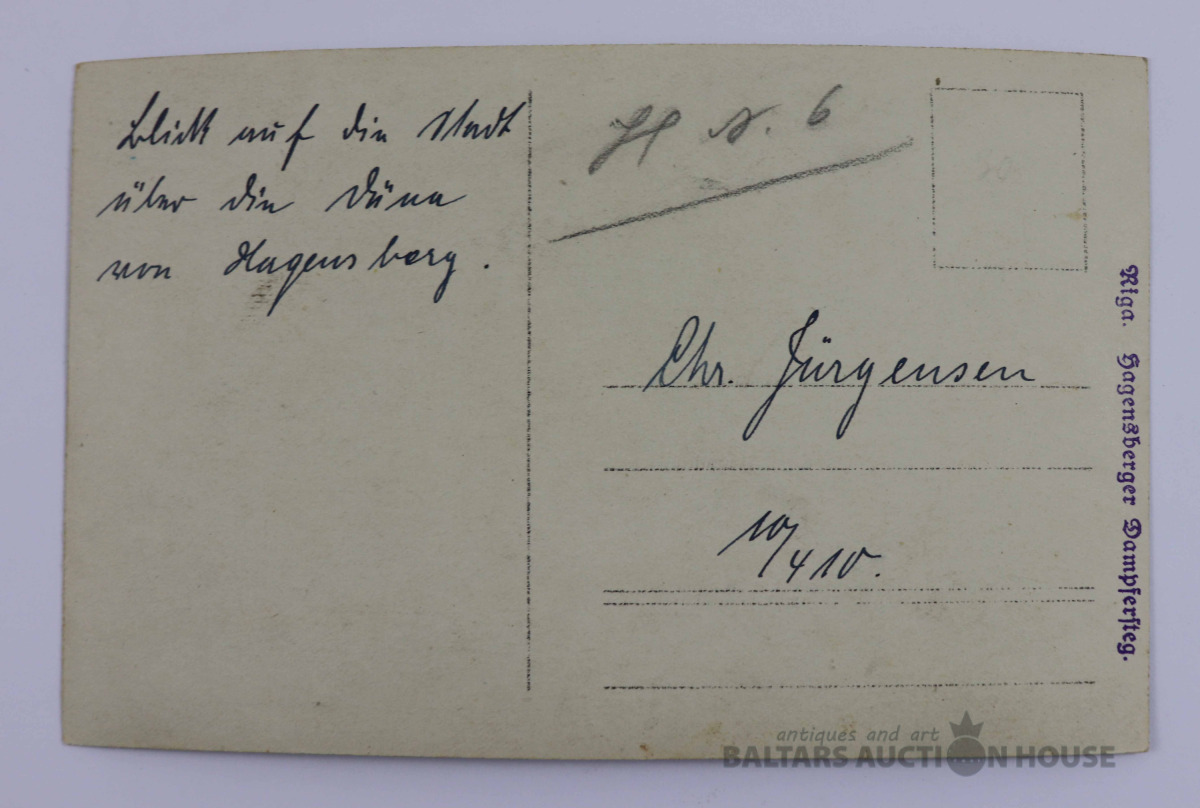 Blick auf die Stadt
über die Düna
von Hagensberg.
N. 6
Chr. Jürgensen
10/4 10.
Riga. Hagensberger Dampfersteg.
antiques and art
BALTARS AUCTION HOUSE